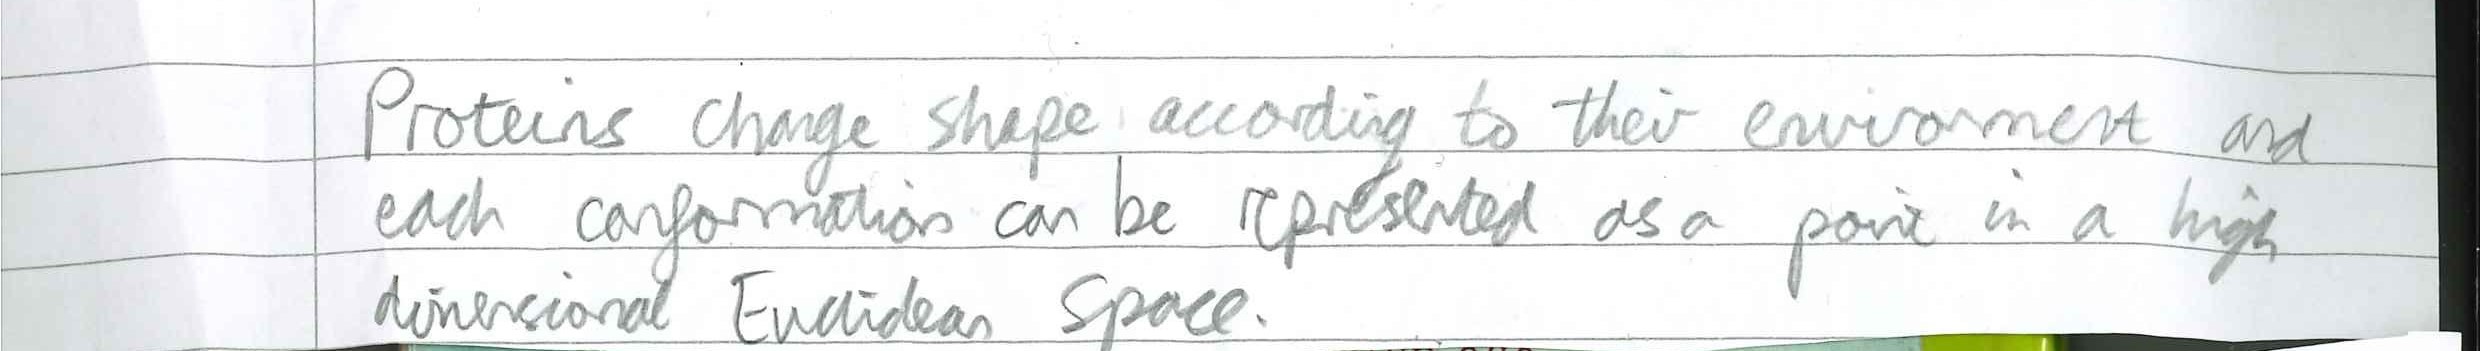 Proteins change shape according to their environment and
each conformation can be represented as a point in a high
dimensional Euclidean Space.